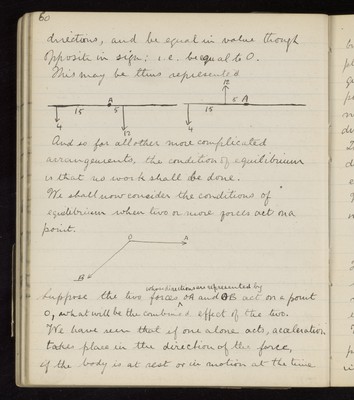 60
directions, and be equal in value though
opposite in sign; i.e. be equal to 0.
This may be thus represented
A
15 5
4 12
12
15 5 A
4
And so for all other more complicated
arrangements, the condition of equilibrium
is that no work shall be done.
We shall now consider the conditions of
equilibrium when two or more forces act on a
point.
O A
B
whose directions are represented by
Suppose the two forces OA and OB act on a point
O, what will be the combined effect of the two.
We have seen that if one alone acts, acceleration
takes place in the direction of the force,
if the body is at rest or in motion at the time